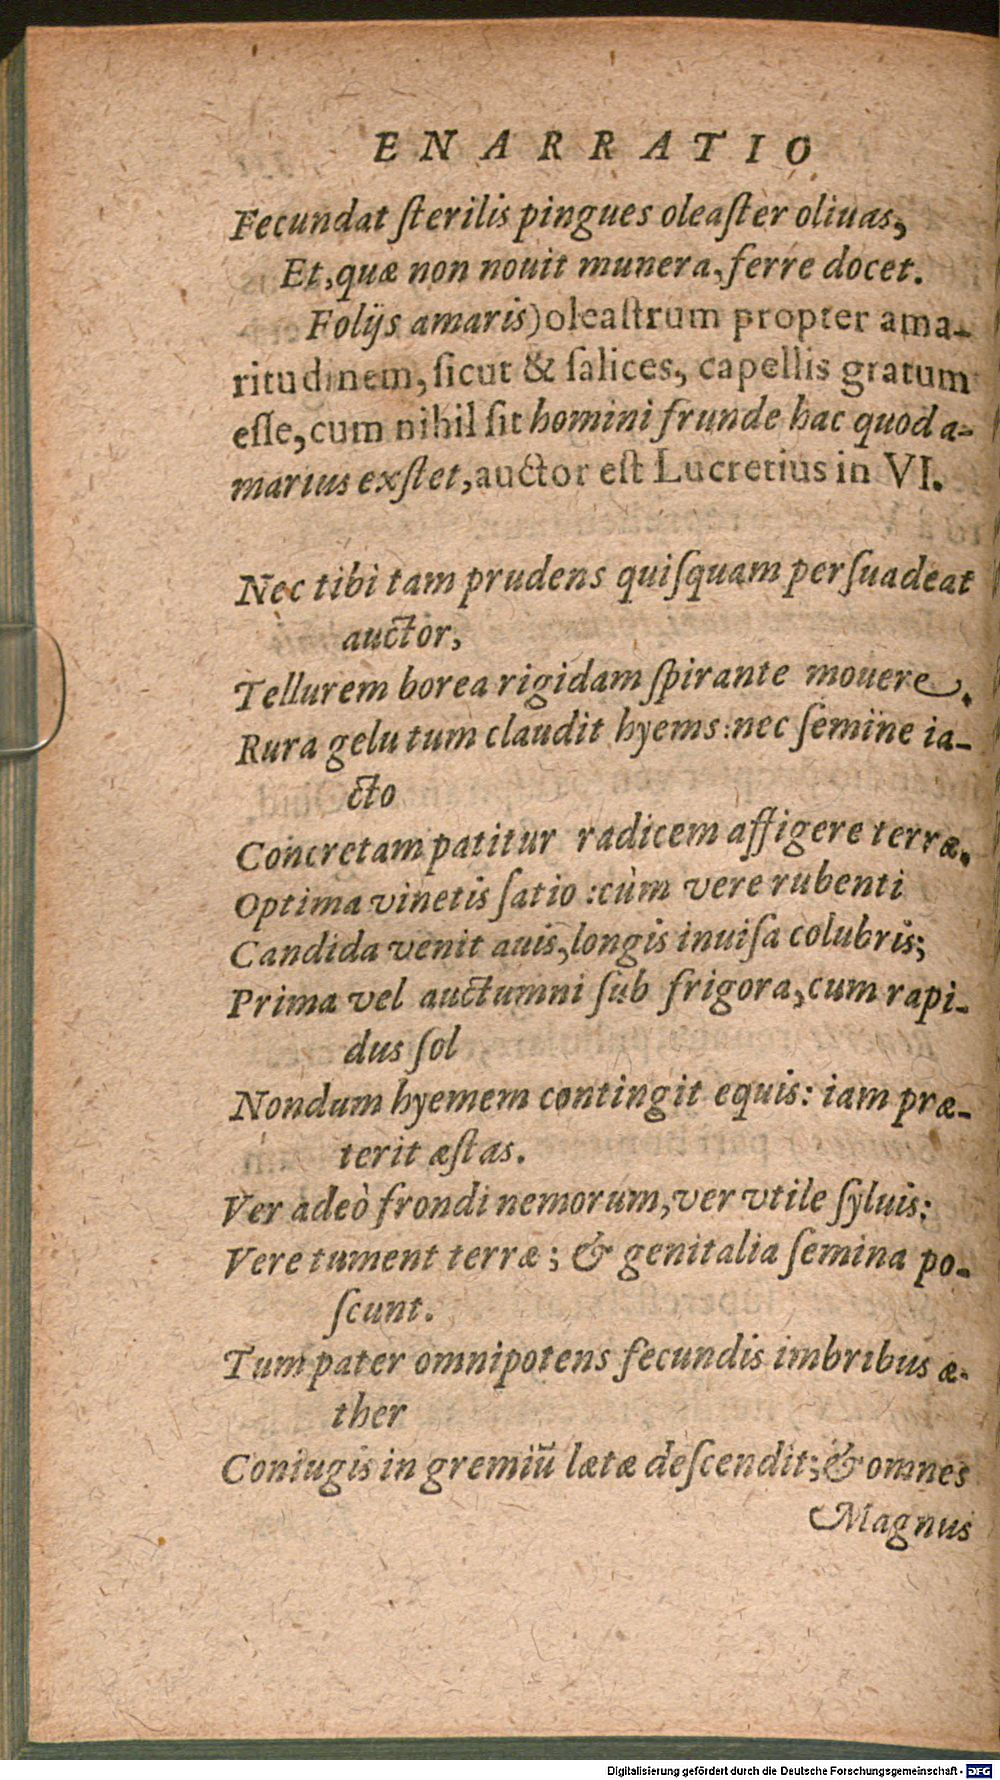 ENARRATIO
Fecundat ſterilis pingues oleaſter oliuas,
Et, quæ non nouit munera, ferre docet.
Folijs amaris) oleaſtrum propter ama-
ritudinem, ſicut & ſalices, capellis gratum
eſſe, cum nihil ſit homini frunde hac quod a-
marius exſtet, auctor eſt Lucretius in VI.
Nec tibi tam prudens quiſquam perſuadeat
auctor,
Tellurem borea rigidam ſpirante mouere.
Rura gelu tum claudit hyems: nec ſemine ia-
cto
Concretam patitur radicem affigere terræ.
Optima vinetis ſatio: cùm vere rubenti
Candida venit auis, longis inuiſa colubris;
Prima vel auctumni ſub frigora, cum rapi-
dus ſol
Nondum hyemem contingit equis: iam præ-
terit æſtas.
Ver adeò frondi nemorum, ver vtile ſyluis:
Vere tument terræ; & genitalia ſemina po-
ſcunt.
Tum pater omnipotens fecundis imbribus æ-
ther
Coniugis in gremiū lætæ deſcendit; & omnes
Magnus
Digitalisierung gefördert durch die Deutsche Forschungsgemeinschaft - DFG